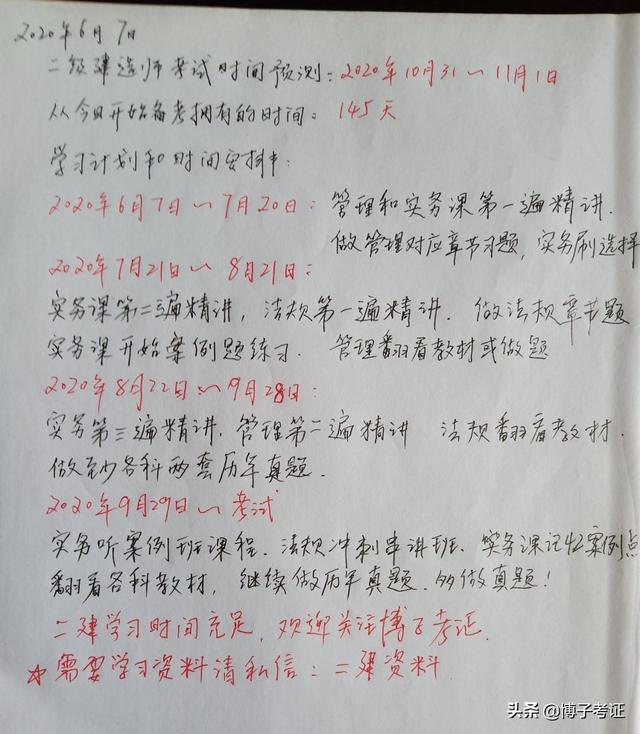 2020年6月7日
二级建造师考试时间预测:2020年10月31~11月1日
从今日开始备考拥有的时间:145天
学习计划和时间安排:
2020年6月7日~7月20日:管理和实务课第一遍精讲.
做管理对应章节习题,实务刷选择
2020年7月21日~8月21日:
实务课第二遍精讲,法规第一遍精讲.做法规章节题
实务课开始案例题练习.管理翻看教材或做题
2020年8月22日~9月28日:
实务第三遍精讲.管理第二遍精讲 法规翻看教材.
做至少各科两套历年真题.
2020年9月29日~考试
实务听案例班课程.法规冲刺串讲班.实务课记忆案例点
翻看各科教材,继续做历年真题.多做真题!
二建学习时间充足,欢迎关注博子考证.
☆需要学习资料请私信:二建资料
头条@博子考证